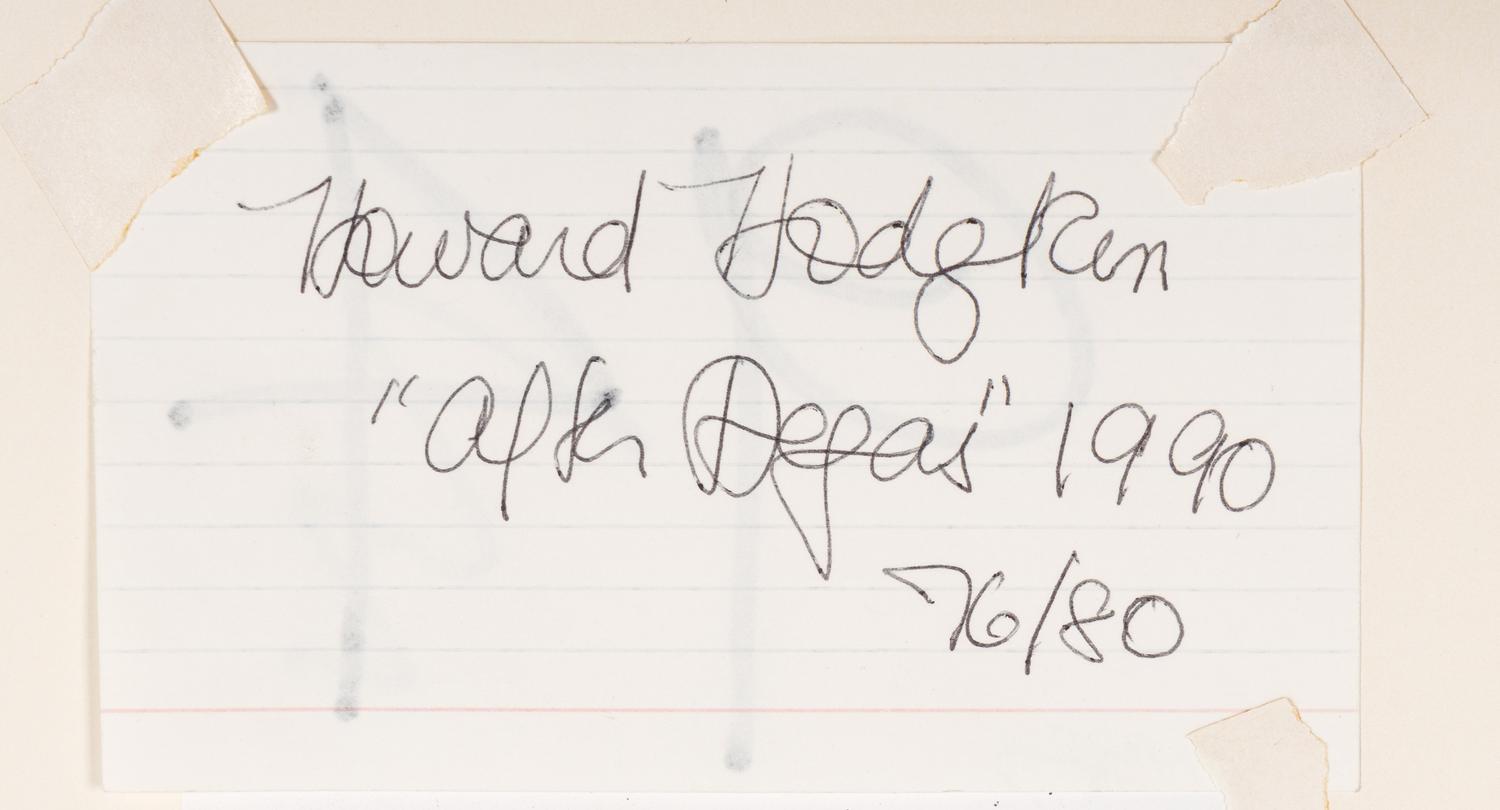 Howard Hodgkin
"After Degas" 1990
76/80